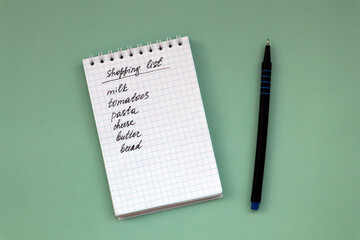 Shopping list
milk
tomatoes
pasta
cheese
butter
bread